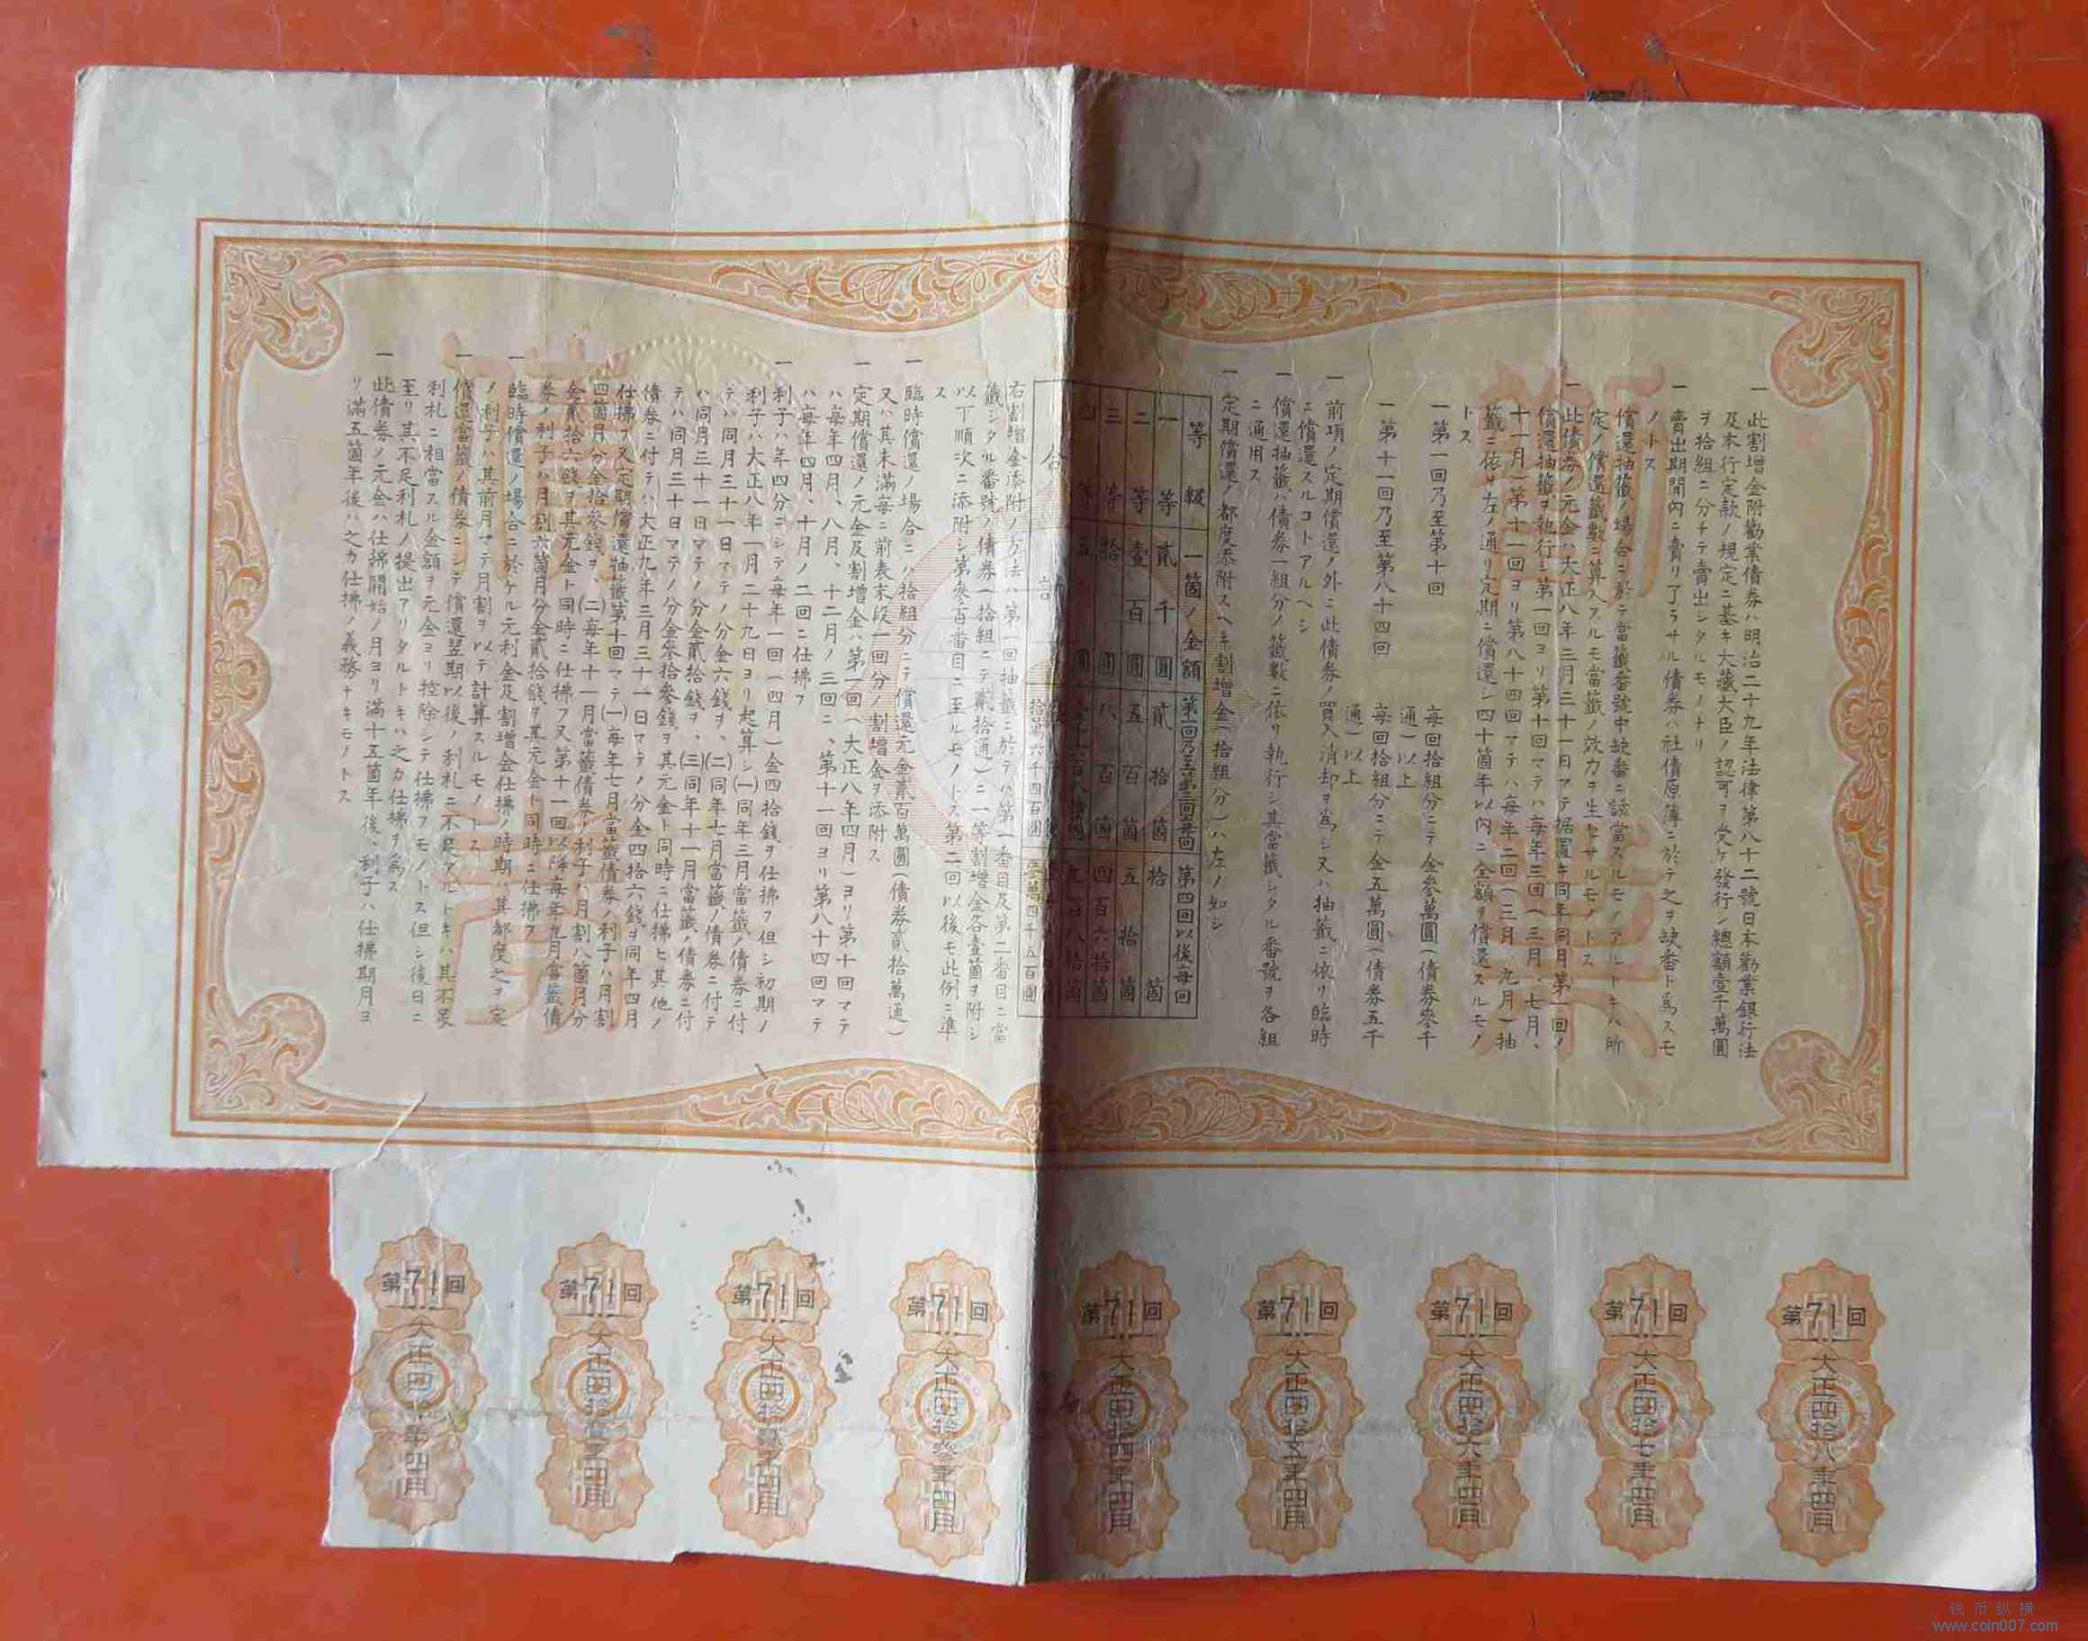 一 此割增金附勸業債券ハ明治二十九年法律第八十二號日本勸業銀行法
及本行定款ノ規定ニ基キ大藏大臣ノ認可ヲ受ケ發行シ總額壹千萬圓
ヲ拾組ニ分チテ賣出シタルモノナリ
一 賣出期間内ニ賣リ了ラサル債券ハ社債原簿ニ於テ之ヲ缺番ト爲スモ
ノトス
償還抽籤ノ場合ニ於テ當籤番號中缺番ニ該當スルモノアルトキハ所
定ノ償還籤數ニ算入スルモ當籤ノ效力ヲ生セサルモノトス
一 此債券ノ元金ハ大正八年三月三十一日マテ据置キ同年同月第一回ノ
償還抽籤ヲ執行シ第一回ヨリ第十回マテハ毎年三回(三月、七月、
十一月)第十一回ヨリ第八十四回マテハ毎年二回(三月、九月)抽
籤ニ依リ左ノ通リ定期ニ償還シ四十箇年以内ニ全額ヲ償還スルモノ
トス
一第一回乃至第十回 毎回拾組分ニテ金參萬圓(債券參千
通)以上
一第十一回乃至第八十四回 毎回拾組分ニテ金五萬圓(債券五千
通)以上
一 前項ノ定期償還ノ外ニ此債券ノ買入消却ヲ爲シ又ハ抽籤ニ依リ臨時
ニ償還スルコトアルヘシ
一 償還抽籤ハ債券一組分ノ籤數ニ依リ執行シ其當籤シタル番號ヲ各組
ニ通用ス
一 定期償還ノ都度添附スヘキ割增金(拾組分)ハ左ノ如シ
等級 一箇ノ金額 第一回乃至第三回毎回 第四回以後毎回
一等 貳千圓 貳拾箇 拾箇
二等 壹百圓 五百箇 五拾箇
三等 拾圓 八百箇 四百六拾箇
四等 五圓 九百八拾箇
合計 拾萬六千四百圓 參萬四千五百圓
右割增金添附ノ方法ハ第一回抽籤ニ於テハ第一番目及第二番目ニ當
籤シタル番號ノ債券(拾組ニテ貳拾通)ニ一等割增金各壹箇ヲ附シ
以下順次ニ添附シ第參百番目ニ至ルモノトス第二回以後モ此例ニ準
ス
一 臨時償還ノ場合ニハ拾組分ニテ償還元金貳百萬圓(債券貳拾萬通)
又ハ其未滿毎ニ前表末段一回分ノ割增金ヲ添附ス
一 定期償還ノ元金及割增金ハ第一回(大正八年四月)ヨリ第十回マテ
ハ毎年四月、八月、十二月ノ三回ニ、第十一回ヨリ第八十四回マテ
ハ毎年四月、十月ノ二回ニ仕拂フ
一 利子ハ年四分ニシテ毎年一回(四月)金四拾錢ヲ仕拂フ但シ初期ノ
利子ハ大正八年一月二十九日ヨリ起算シ(一)同年三月當籤ノ債券ニ付
テハ同月三十一日マテノ分金六錢ヲ、(二)同年七月當籤ノ債券ニ付テ
ハ同月三十一日マテノ分金貳拾錢ヲ、(三)同年十一月當籤ノ債券ニ付
テハ同月三十日マテノ分金參拾參錢ヲ其元金ト同時ニ仕拂ヒ其他ノ
債券ニ付テハ大正九年三月三十一日マテノ分金四拾六錢ヲ同年四月
仕拂フ又定期償還抽籤第十回マテ(一)毎年七月當籤債券ノ利子ハ月割
四箇月分金拾參錢ヲ、(二)毎年十一月當籤債券ノ利子ハ月割八箇月分
金貳拾六錢ヲ其元金ト同時ニ仕拂フ又第十一回以降毎年九月當籤債
券ノ利子ハ月割六箇月分金貳拾錢ヲ其元金ト同時ニ仕拂フ
一 臨時償還ノ場合ニ於ケル元利金及割增金仕拂ノ時期ハ其都度之ヲ定
ノ利子ハ其前月マテ月割ヲ以テ計算スルモノトス
一 償還當籤ノ債券ニシテ償還翌期以後ノ利札ニ不足アルトキハ其不足
利札ニ相當スル金額ヲ元金ヨリ控除シテ仕拂フモノトス但シ後日ニ
至リ其不足利札ノ提出アリタルトキハ之カ仕拂ヲ爲ス
一 此債券ノ元金ハ仕拂開始ノ月ヨリ滿十五箇年後、利子ハ仕拂期月ヨ
リ滿五箇年後ハ之カ仕拂ノ義務ナキモノトス
第71回 大正四拾八年四月
第71回 大正四拾七年四月
第71回 大正四拾六年四月
第71回 大正四拾五年四月
第71回 大正四拾四年四月
第71回 大正四拾參年四月
第71回 大正四拾貳年四月
第71回 大正四拾壹年四月
第71回 大正四拾年四月
钱币纵横
www.coin007.com